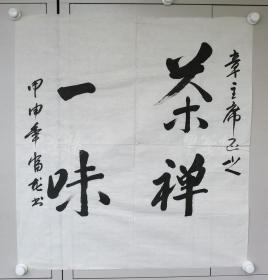 章主席正之
茶禅
一味
甲申年富龙书